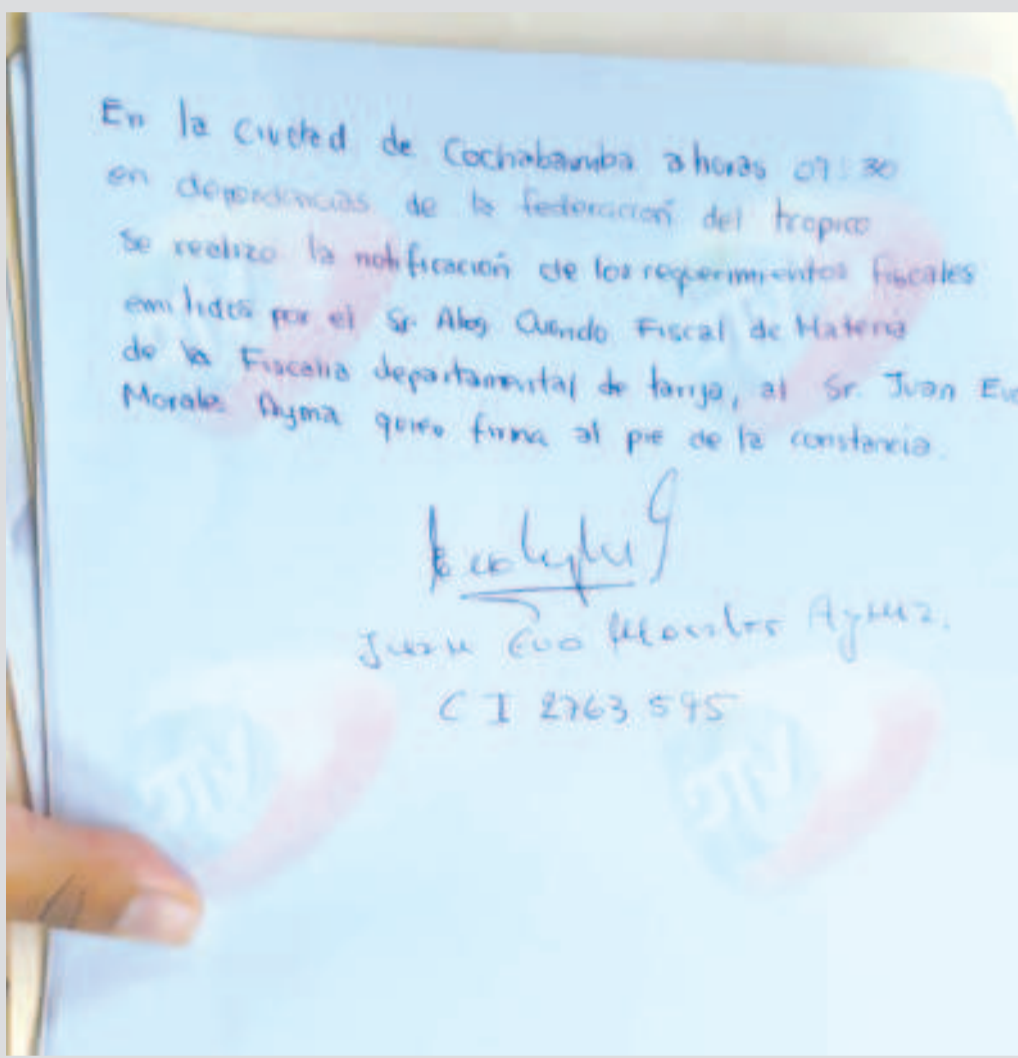 En la Ciudad de Cochabamba a horas 07:30
en dependencias de la federacion del tropico
Se realizo la notificación de los requerimientos fiscales
emitidos por el Sr. Fiscal de Materia
de la Fiscalia departamental de tarija, al Sr. Juan Evo
Morales Ayma quien firma al pie de la constancia.
Juan Evo Morales Ayma.
C I 2763 595
ATV
ATV